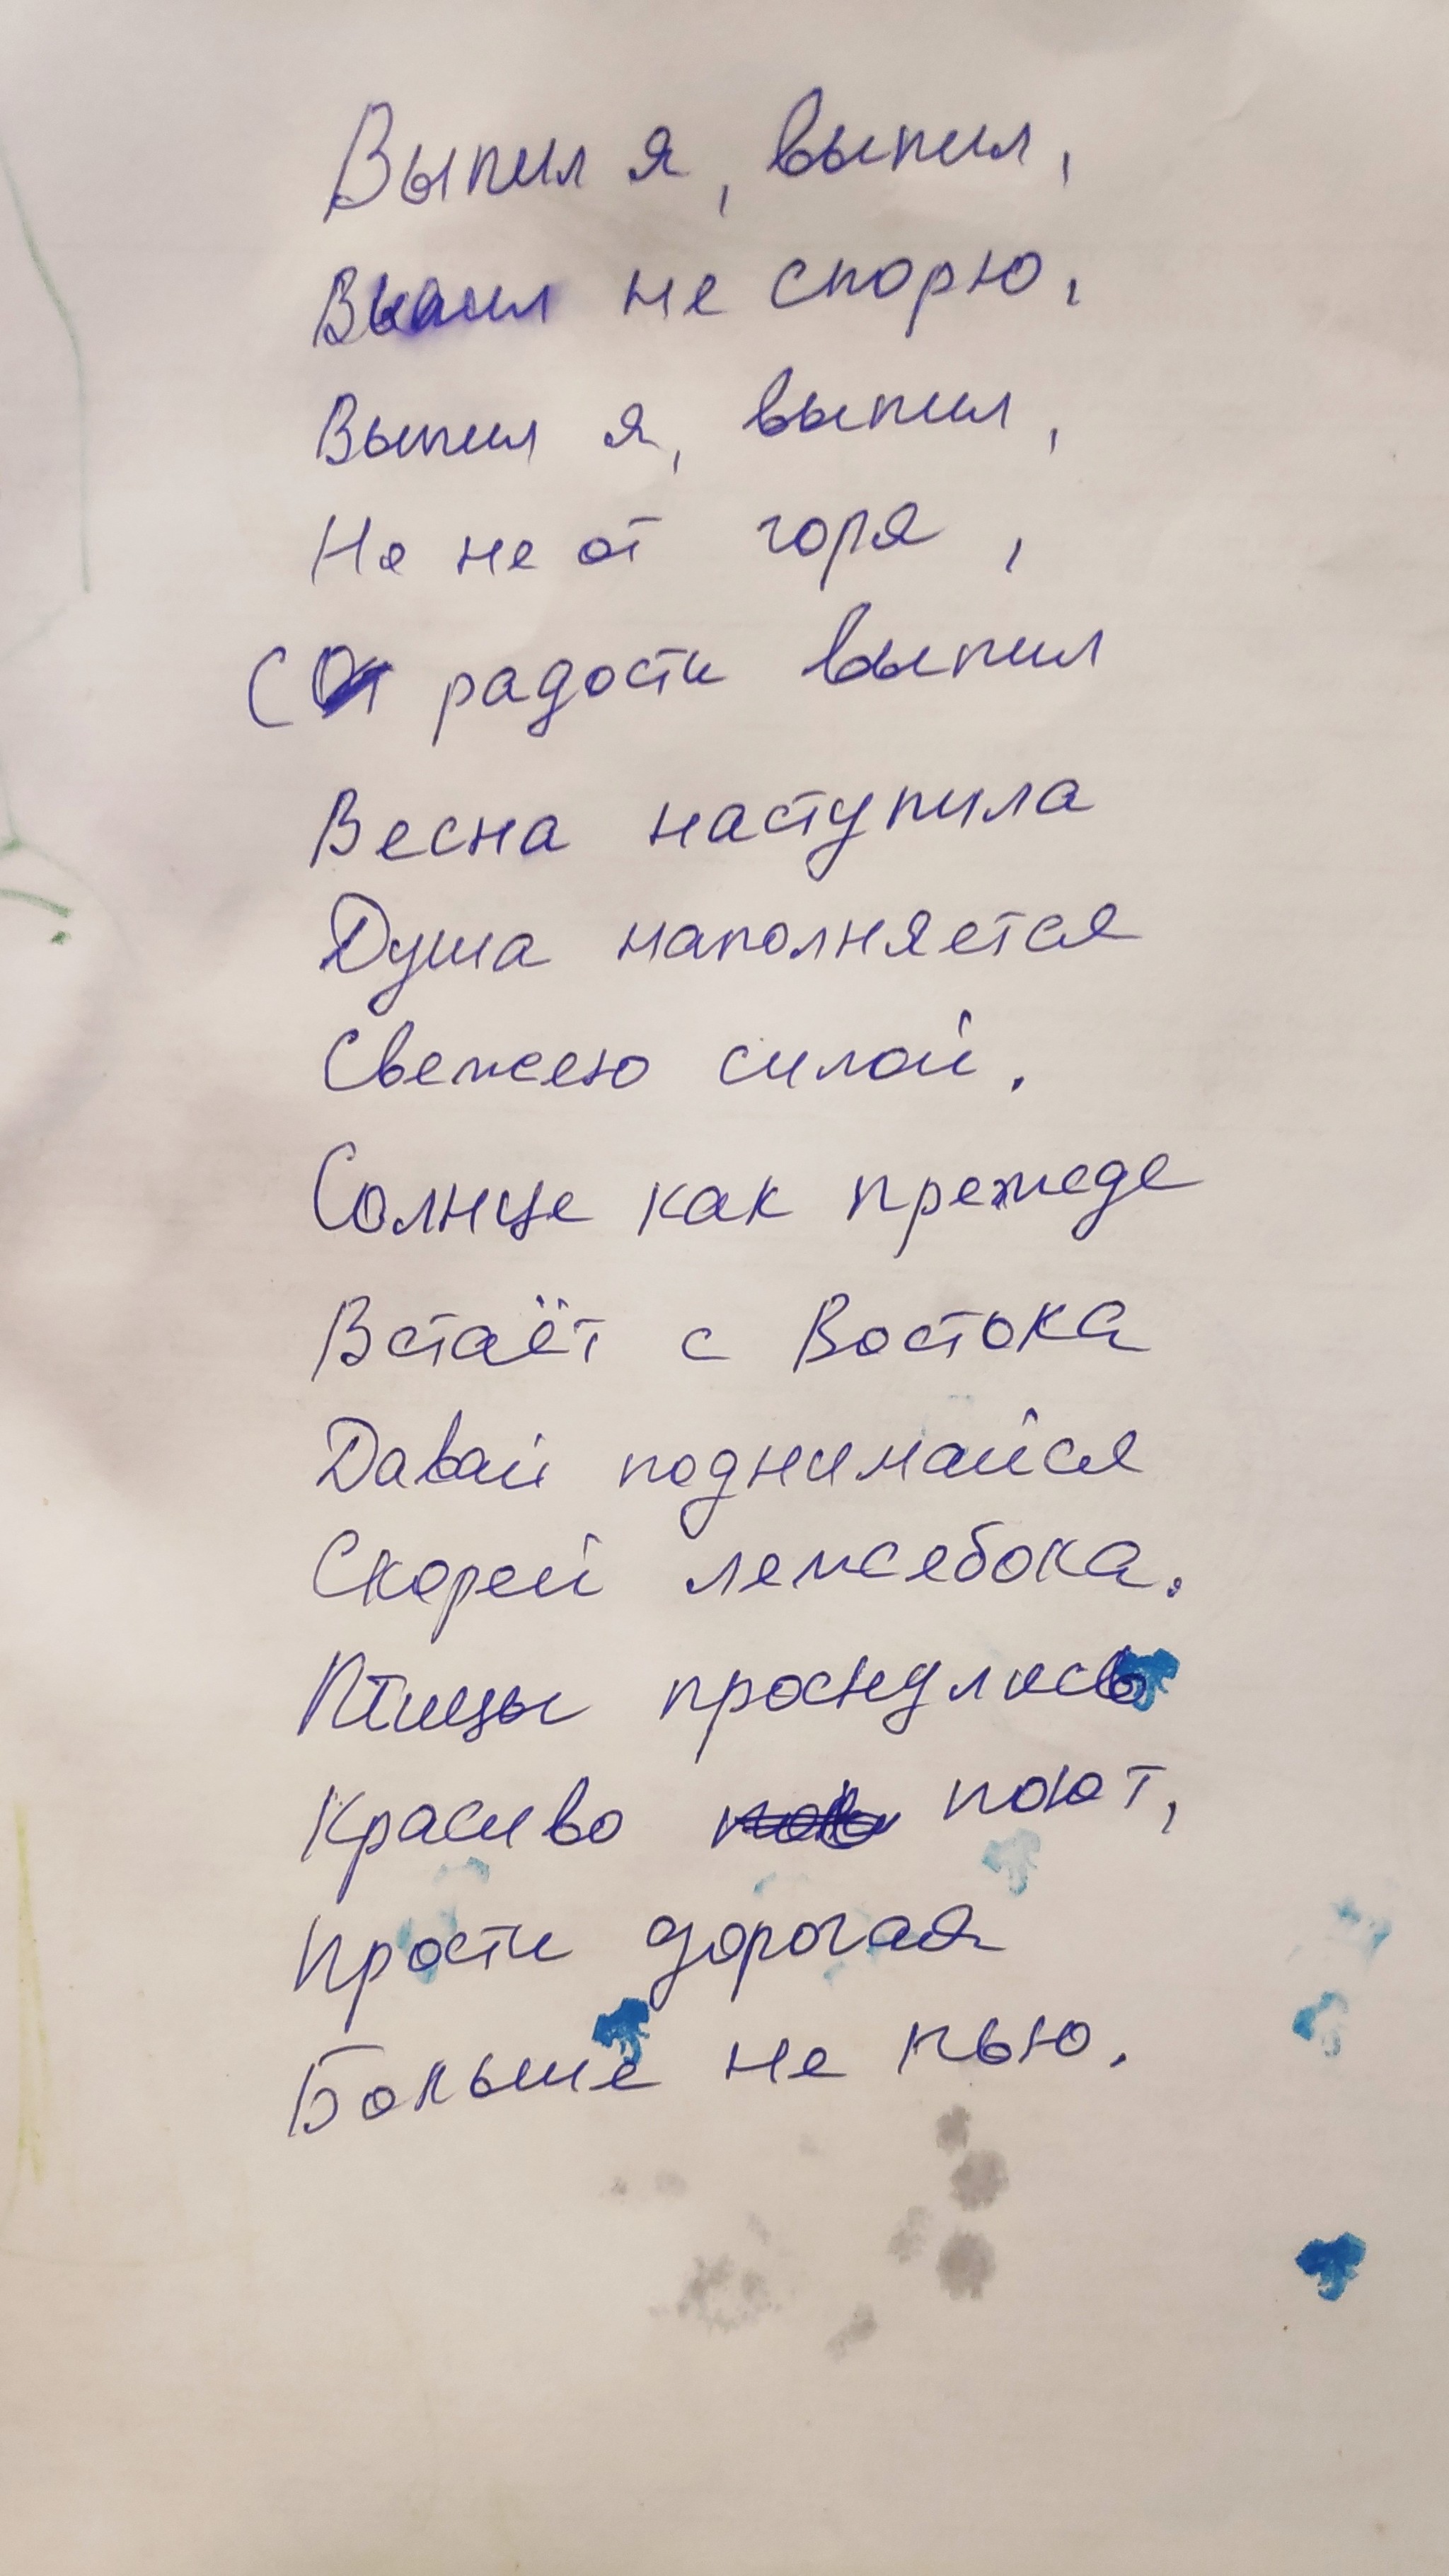 Выпил я, выпил,
Выпил не спорю,
Выпил я, выпил,
Не не от горя,
С радости выпил
Весна наступила
Душа наполняется
Свежею силой.
Солнце как прежде
Встаёт с Востока
Давай поднимайся
Скорей лежебока.
Птицы проснулись
Красиво поют,
Прости дорогая
Больше не пью.